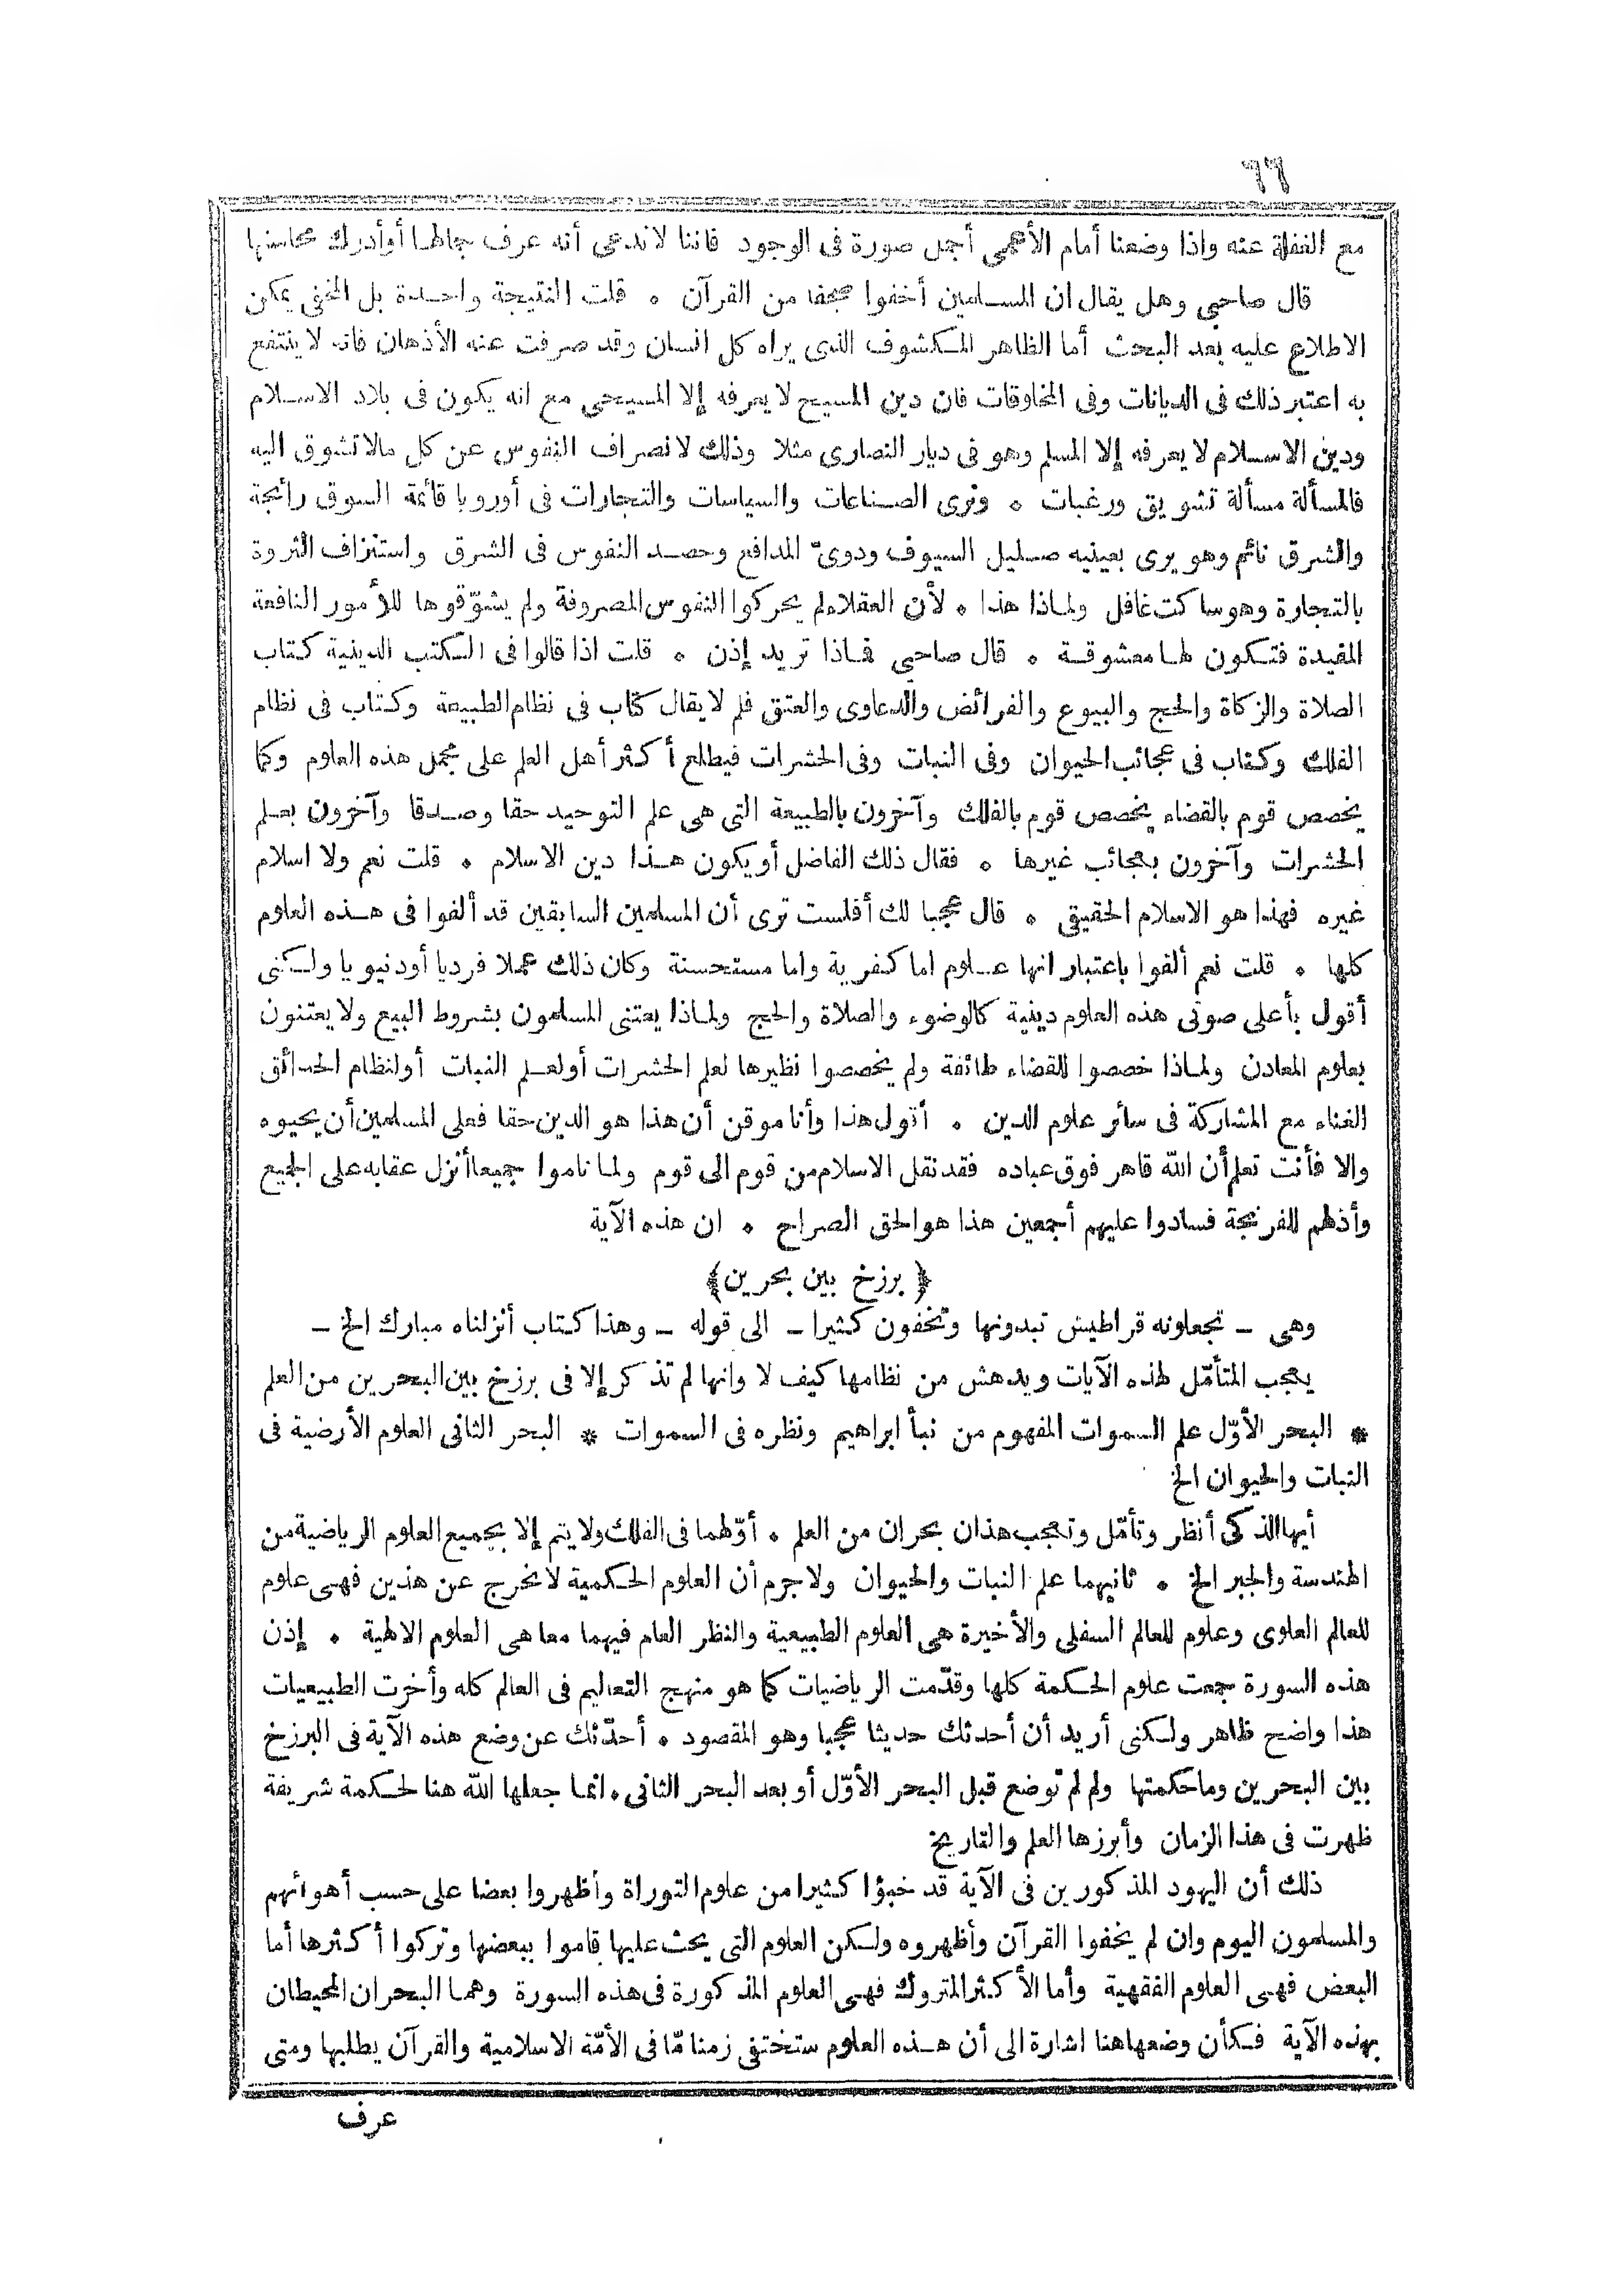 ٦٦
مع الغفلة عنه واذا وضعنا أمام الأعمى أجمل صورة فى الوجود فاننا لاندعى أنه عرف جمالها أوأدرك محاسنها
قال صاحبى وهل يقال ان المسلمين أخفوا صحفا من القرآن • قلت النتيجة واحدة بل المخفى يمكن
الاطلاع عليه بعد البحث أما الظاهر المكشوف الذى يراه كل انسان وقد صرفت عنه الأذهان فانه لاينتفع
به اعتبر ذلك فى الديانات وفى المخلوقات فان دين المسيح لايعرفه إلا المسيحى مع انه يكون فى بلاد الاسلام
ودين الاسلام لايعرفه إلا المسلم وهو فى ديار النصارى مثلا وذلك لانصراف النفوس عن كل مالاتشوق اليه
فالمسألة مسألة تشويق ورغبات • وترى الصناعات والسياسات والتجارات فى أوروبا قائمة السوق رائجة
والشرق نائم وهو يرى بعينيه صليل السيوف ودوىّ المدافع وحصد النفوس فى الشرق واستنزاف الثروة
بالتجارة وهوساكت غافل ولماذا هذا • لأن العقلاء لم يحركوا النفوس المصروفة ولم يشوّقوها للأمور النافعة
المفيدة فتكون لها معشوقة • قال صاحبى فماذا تريد إذن • قلت اذا قالوا فى الكتب الدينية كتاب
الصلاة والزكاة والحج والبيوع والفرائض والدعاوى والعتق فلم لايقال كتاب فى نظام الطبيعة وكتاب فى نظام
الفلك وكتاب فى عجائب الحيوان وفى النبات وفى الحشرات فيطلع أكثر أهل العلم على مجمل هذه العلوم وكما
يخصص قوم بالقضاء يخصص قوم بالفلك وآخرون بالطبيعة التى هى علم التوحيد حقا وصدقا وآخرون بعلم
الحشرات وآخرون بعجائب غيرها • فقال ذلك الفاضل أو يكون هذا دين الاسلام • قلت نعم ولا اسلام
غيره فهذا هو الاسلام الحقيقى • قال عجبا لك أفلست ترى أن المسلمين السابقين قد ألفوا فى هذه العلوم
كلها • قلت نعم ألفوا باعتبار انها علوم اما كفرية واما مستحسنة وكان ذلك عملا فرديا أودنيويا ولكنى
أقول بأعلى صوتى هذه العلوم دينية كالوضوء والصلاة والحج ولماذا يعتنى المسلمون بشروط البيع ولايعتنون
بعلوم المعادن ولماذا خصصوا للقضاء طائفة ولم يخصصوا نظيرها لعلم الحشرات أولعلم النبات أولنظام الحدائق
الغناء مع المشاركة فى سائر علوم الدين • أقول هذا وأنا موقن أن هذا هو الدين حقا فعلى المسلمين أن يحيوه
والا فأنت تعلم أن الله قاهر فوق عباده فقد نقل الاسلام من قوم الى قوم ولما ناموا جميعا أنزل عقابه على الجميع
وأذلهم للفرنجة فسادوا عليهم أجمعين هذا هوالحق الصراح • ان هذه الآية
﴿ برزخ بين بحرين ﴾
وهى ـ تجعلونه قراطيس تبدونها وتخفون كثيرا ـ الى قوله ـ وهذا كتاب أنزلناه مبارك الخ ـ
يعجب المتأمّل لهذه الآيات ويدهش من نظامها كيف لا وانها لم تذكر إلا فى برزخ بين البحرين من العلم
* البحر الأوّل علم السموات المفهوم من نبأ ابراهيم ونظره فى السموات * البحر الثانى العلوم الأرضية فى
النبات والحيوان الخ
أيها الذكى أنظر وتأمّل وتعجب هذان بحران من العلم • أوّلهما فى الفلك ولايتم إلا بجميع العلوم الرياضية من
الهندسة والجبر الخ • ثانيهما علم النبات والحيوان ولاجرم أن العلوم الحكمية لاتخرج عن هذين فهى علوم
للعالم العلوى وعلوم للعالم السفلى والأخيرة هى العلوم الطبيعية والنظر العام فيهما معا هى العلوم الالهية • إذن
هذه السورة جمعت علوم الحكمة كلها وقدّمت الرياضيات كما هو منهج التعاليم فى العالم كله وأخرت الطبيعيات
هذا واضح ظاهر ولكنى أريد أن أحدثك حديثا عجبا وهو المقصود • أحدّثك عن وضع هذه الآية فى البرزخ
بين البحرين وماحكمتها ولم لم توضع قبل البحر الأوّل أو بعد البحر الثانى • انما جعلها الله هنا لحكمة شريفة
ظهرت فى هذا الزمان وأبرزها العلم والتاريخ
ذلك أن اليهود المذكورين فى الآية قد خبؤا كثيرا من علوم التوراة وأظهروا بعضا على حسب أهوائهم
والمسلمون اليوم وان لم يخفوا القرآن وأظهروه ولكن العلوم التى يحث عليها قاموا ببعضها وتركوا أكثرها أما
البعض فهى العلوم الفقهية وأما الأكثر المتروك فهى العلوم المذكورة فى هذه السورة وهما البحران المحيطان
بهذه الآية فكأن وضعها هنا اشارة الى أن هذه العلوم ستختفى زمنا مّا فى الأمّة الاسلامية والقرآن يطلبها ومتى
عرف